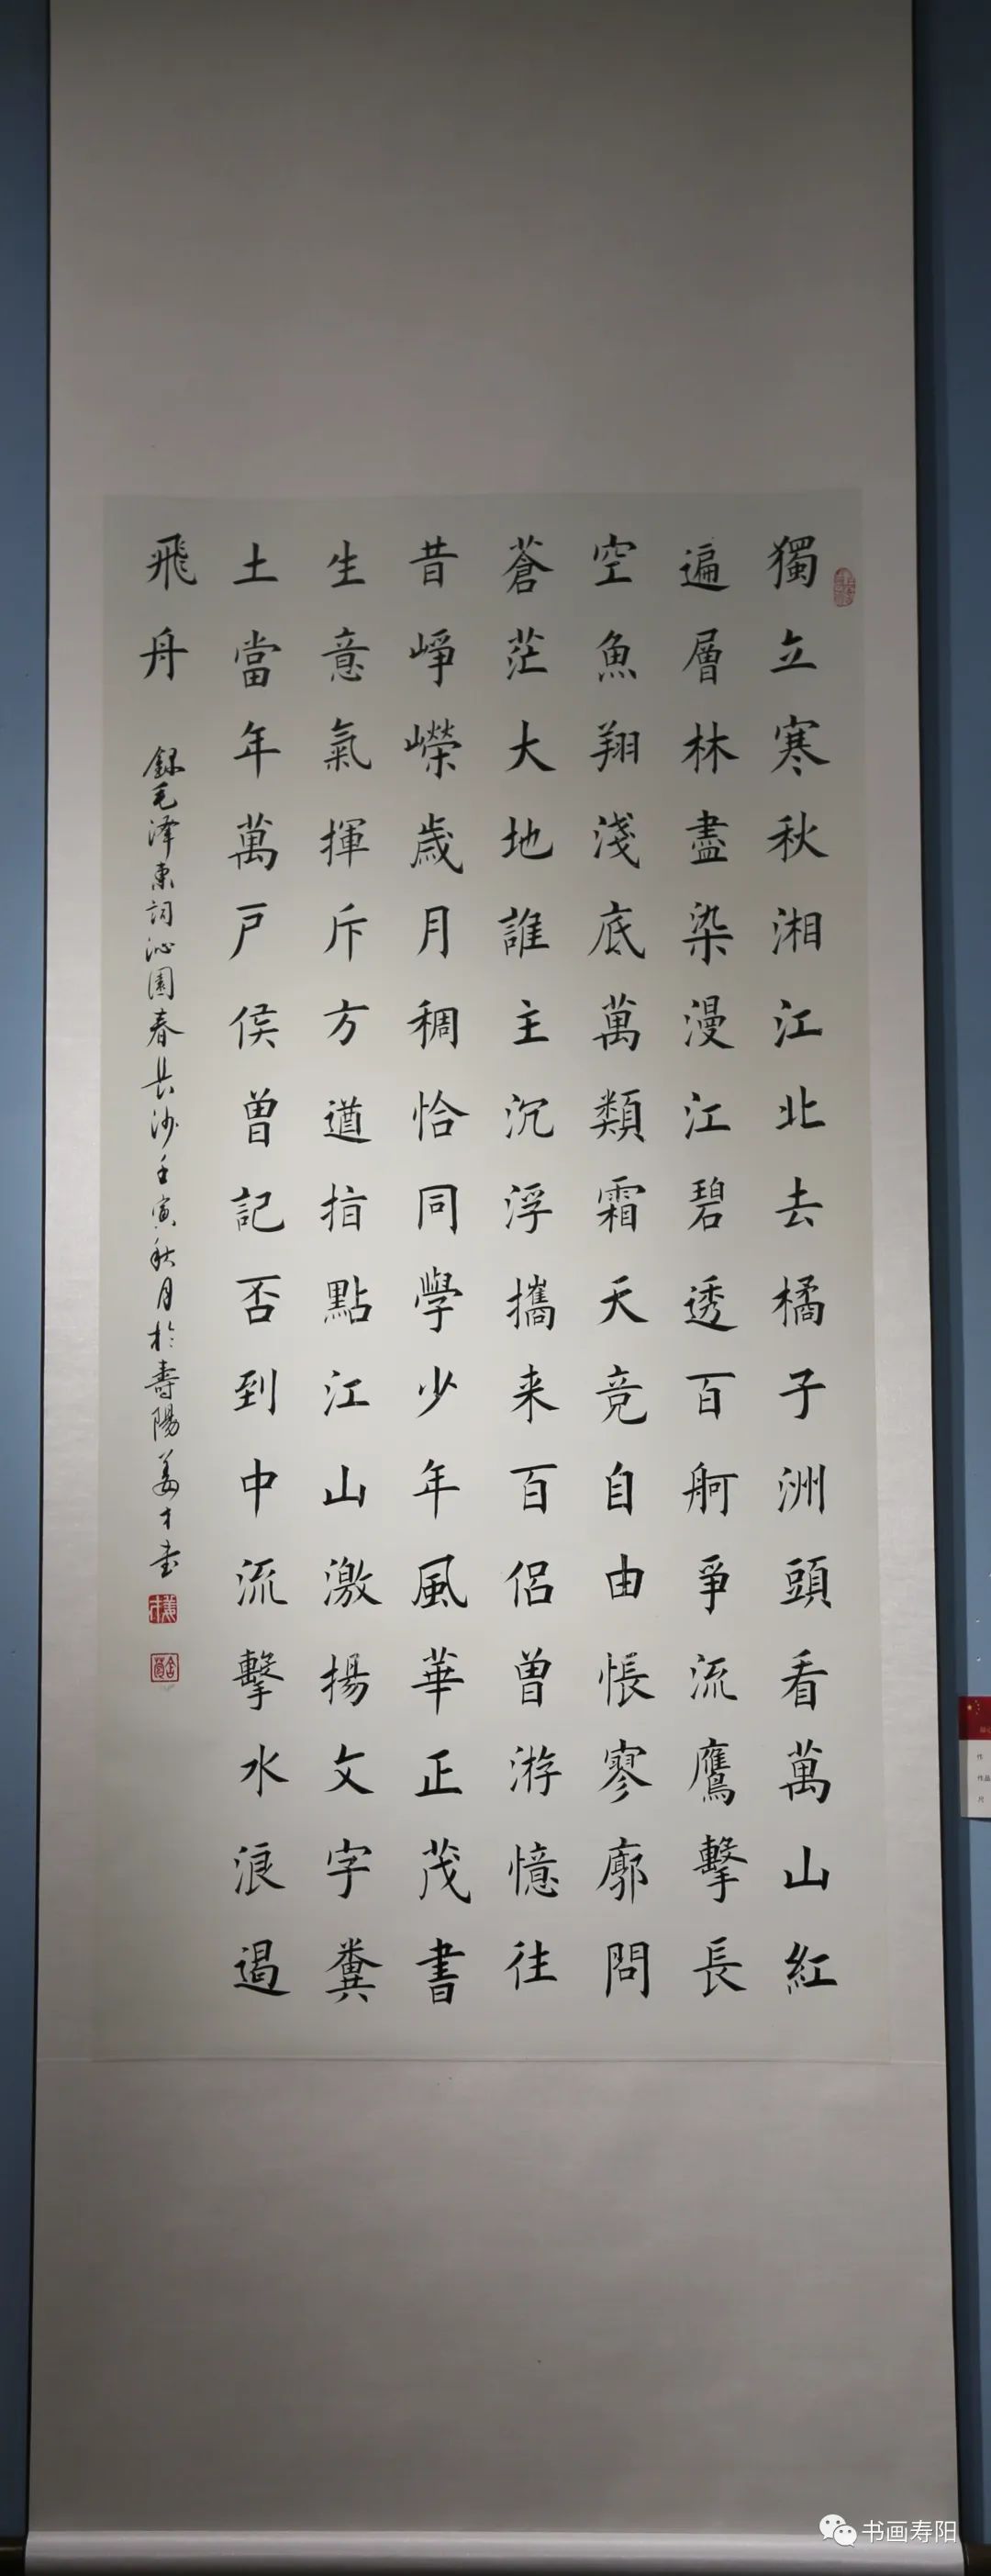 獨立寒秋湘江北去橘子洲頭看萬山紅
遍層林盡染漫江碧透百舸爭流鷹擊長
空魚翔淺底萬類霜天竞自由悵寥廓問
蒼茫大地誰主沉浮攜来百侣曾游憶往
昔崢嶸歲月稠恰同學少年風華正茂書
生意氣揮斥方遒指點江山激揚文字糞
土當年萬戶侯曾記否到中流擊水浪遏
飛舟
録毛泽東詞沁園春長沙壬寅秋月於壽陽姜才书
姜才
作
作品
尺
书画寿阳